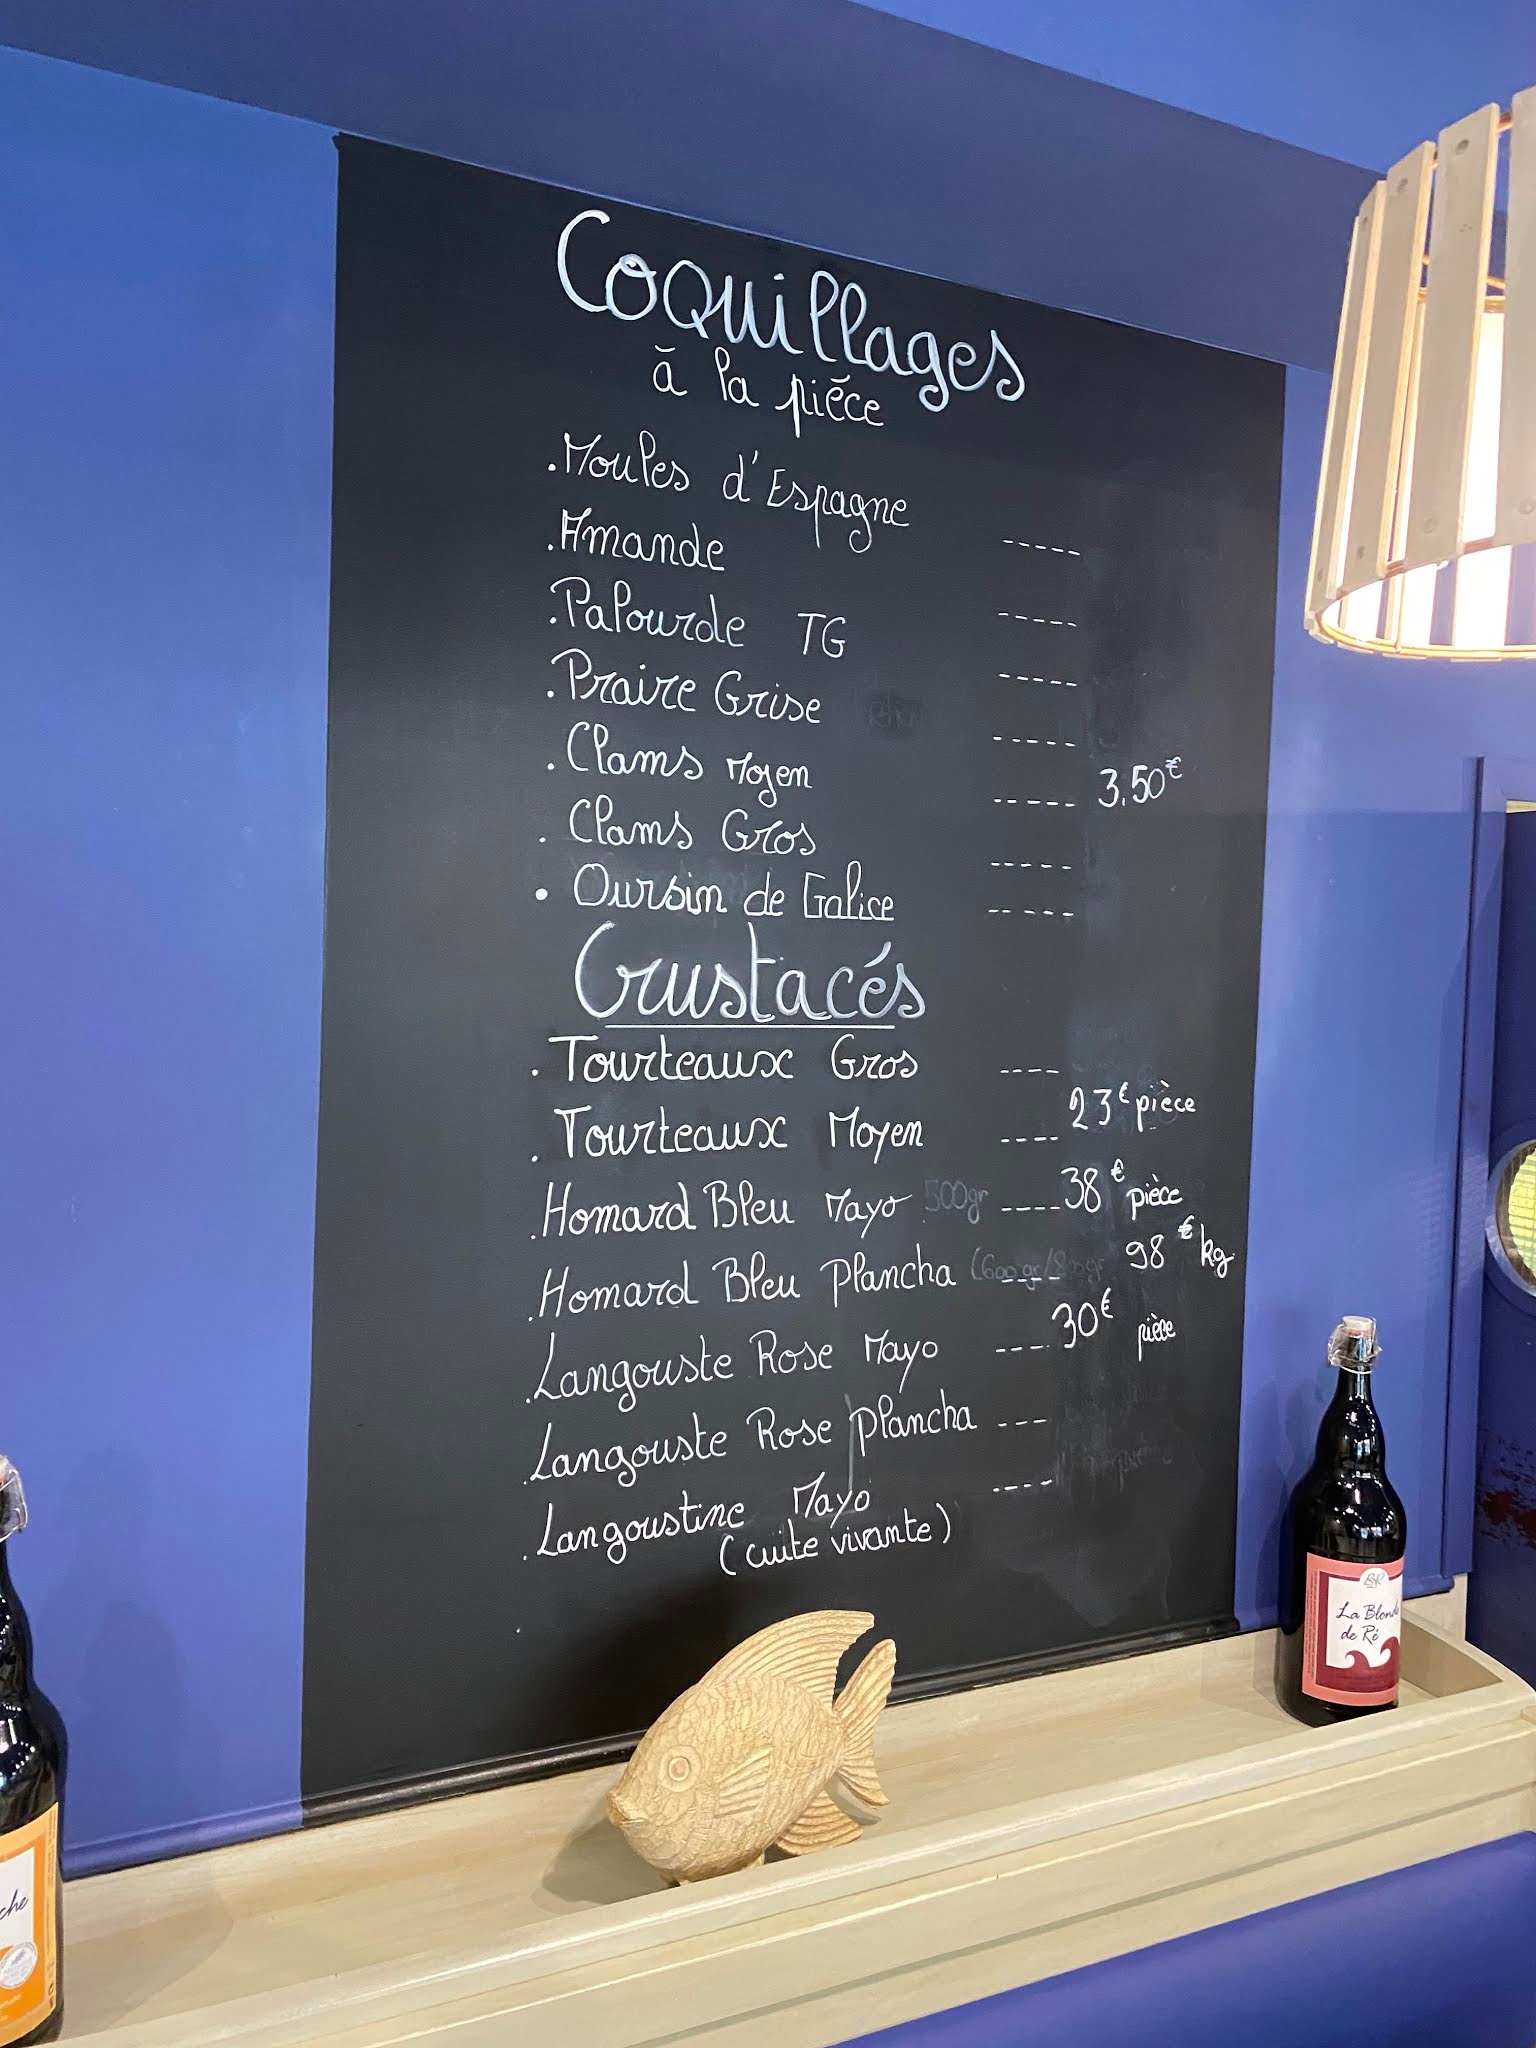 Coquillages
à la pièce
. Moules d'Espagne -----
. Amande -----
. Palourde TG -----
. Praire Grise -----
. Clams Moyen ----- 3.50€
. Clams Gros -----
. Oursin de Galice -----
Crustacés
. Tourteaux Gros ----
. Tourteaux Moyen ---- 23€ pièce
. Homard Bleu Mayo 500gr ---- 38€ pièce
. Homard Bleu Plancha (600gr/800gr ---- 98€ kg
. Langouste Rose Mayo ---- 30€ pièce
. Langouste Rose Plancha ---
. Langoustine Mayo ----
(cuite vivante)
La Blonde
de Ré
che